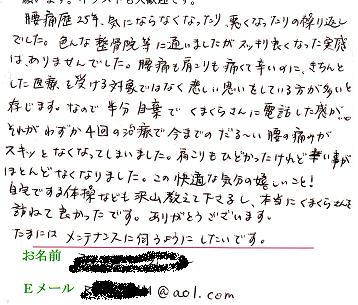 腰痛歴25年、気にならなくなったり、悪くなったりの繰り返し
でした。色んな整骨院等に通いましたがスッキリ良くなった実感
はありませんでした。腰痛も肩こりも痛くて辛いのに、きちんと
した医療を受ける対象ではなく悲しい思いをしている方が多いと
存じます。なので半分自棄でくまくらさんに電話した感が…
それがわずか4回の治療で今までのだる〜い腰の痛みが
スキッとなくなってしまいました。肩こりもひどかったけれど辛い事が
ほとんどなくなりました。この快適な気分の嬉しいこと!
自宅でする体操なども沢山教えて下さるし、本当にくまくらさんを
訪ねて良かったです。ありがとうございます。
たまにはメンテナンスに伺うようにしたいです。
お名前
Eメール @aol.com